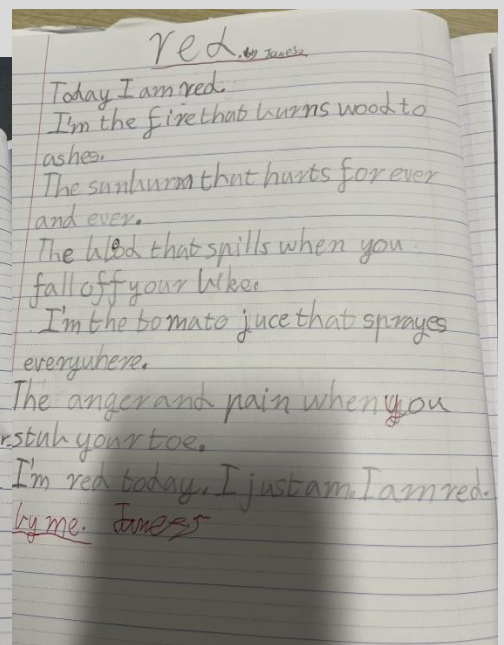 red. by James
Today I am red.
I'm the fire that burns wood to
ashes.
The sunburn that hurts for ever
and ever.
The blod that spills when you
fall off your bike.
I'm the tomato juce that sprayes
everywhere.
The anger and pain when you
stub your toe.
I'm red today. I just am. I am red.
by me. James